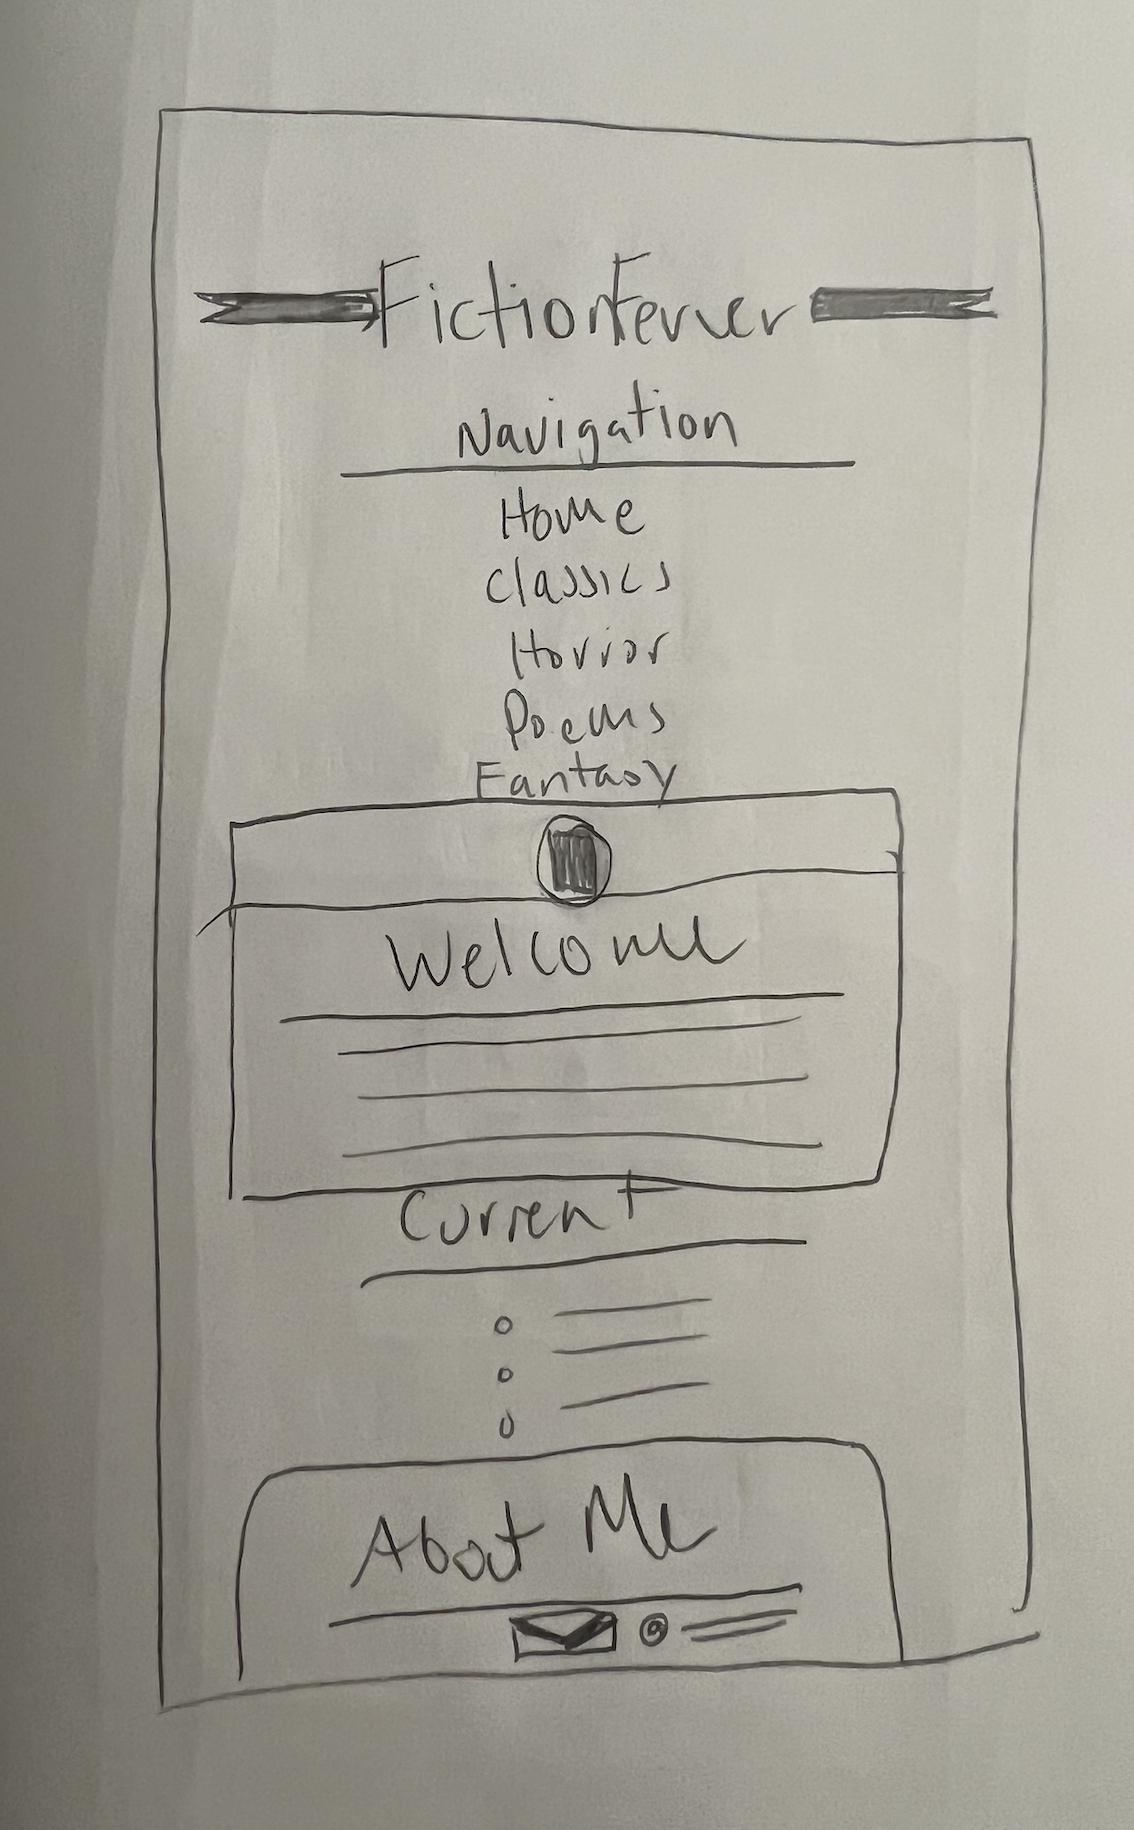 FictionFever
Navigation
Home
Classics
Horror
Poems
Fantasy
Welcome
Current
About Me
@